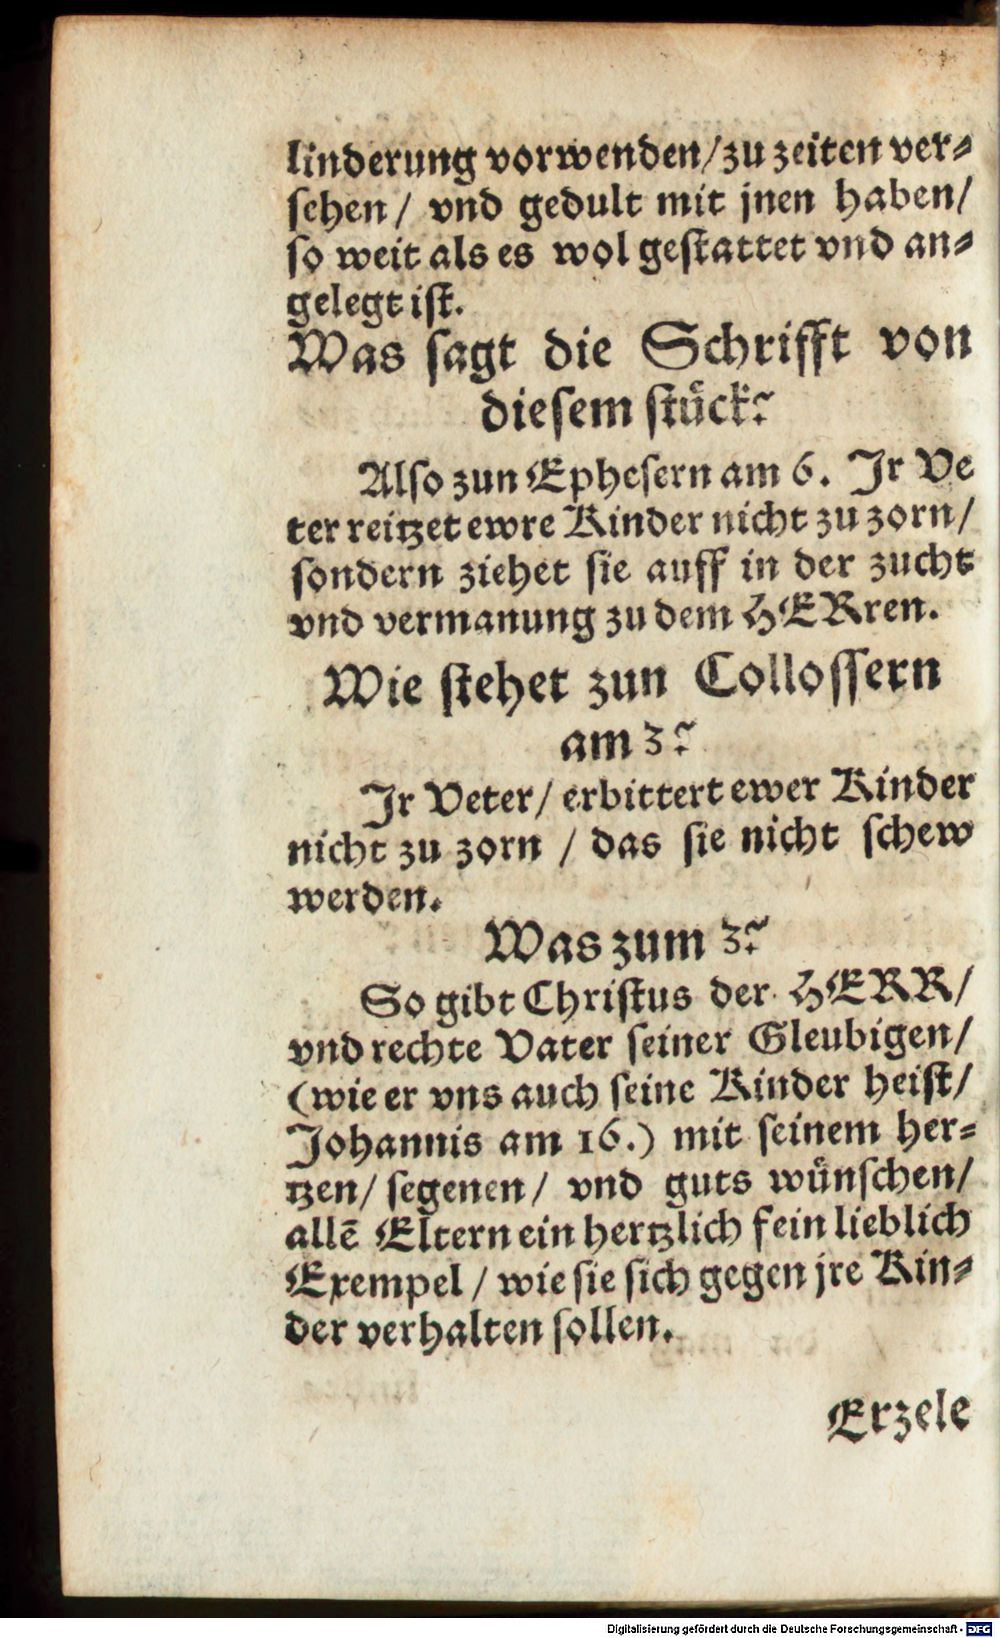 linderung vorwenden/zu zeiten ver⸗
sehen/ vnd gedult mit jnen haben/
so weit als es wol gestattet vnd an⸗
gelegt ist.
Was sagt die Schrifft von
diesem stück?
Also zun Ephesern am 6. Jr Ve
ter reitzet ewre Kinder nicht zu zorn/
sondern ziehet sie auff in der zucht
vnd vermanung zu dem HERren.
Wie stehet zun Collossern
am 3?
Jr Veter/ erbittert ewer Kinder
nicht zu zorn / das sie nicht schew
werden.
Was zum 3?
So gibt Christus der HERR/
vnd rechte Vater seiner Gleubigen/
(wie er vns auch seine Kinder heist/
Johannis am 16.) mit seinem her⸗
tzen/ segenen/ vnd guts wünschen/
allē Eltern ein hertzlich fein lieblich
Exempel / wie sie sich gegen jre Kin⸗
der verhalten sollen.
Erzele
Digitalisierung gefördert durch die Deutsche Forschungsgemeinschaft - DFG